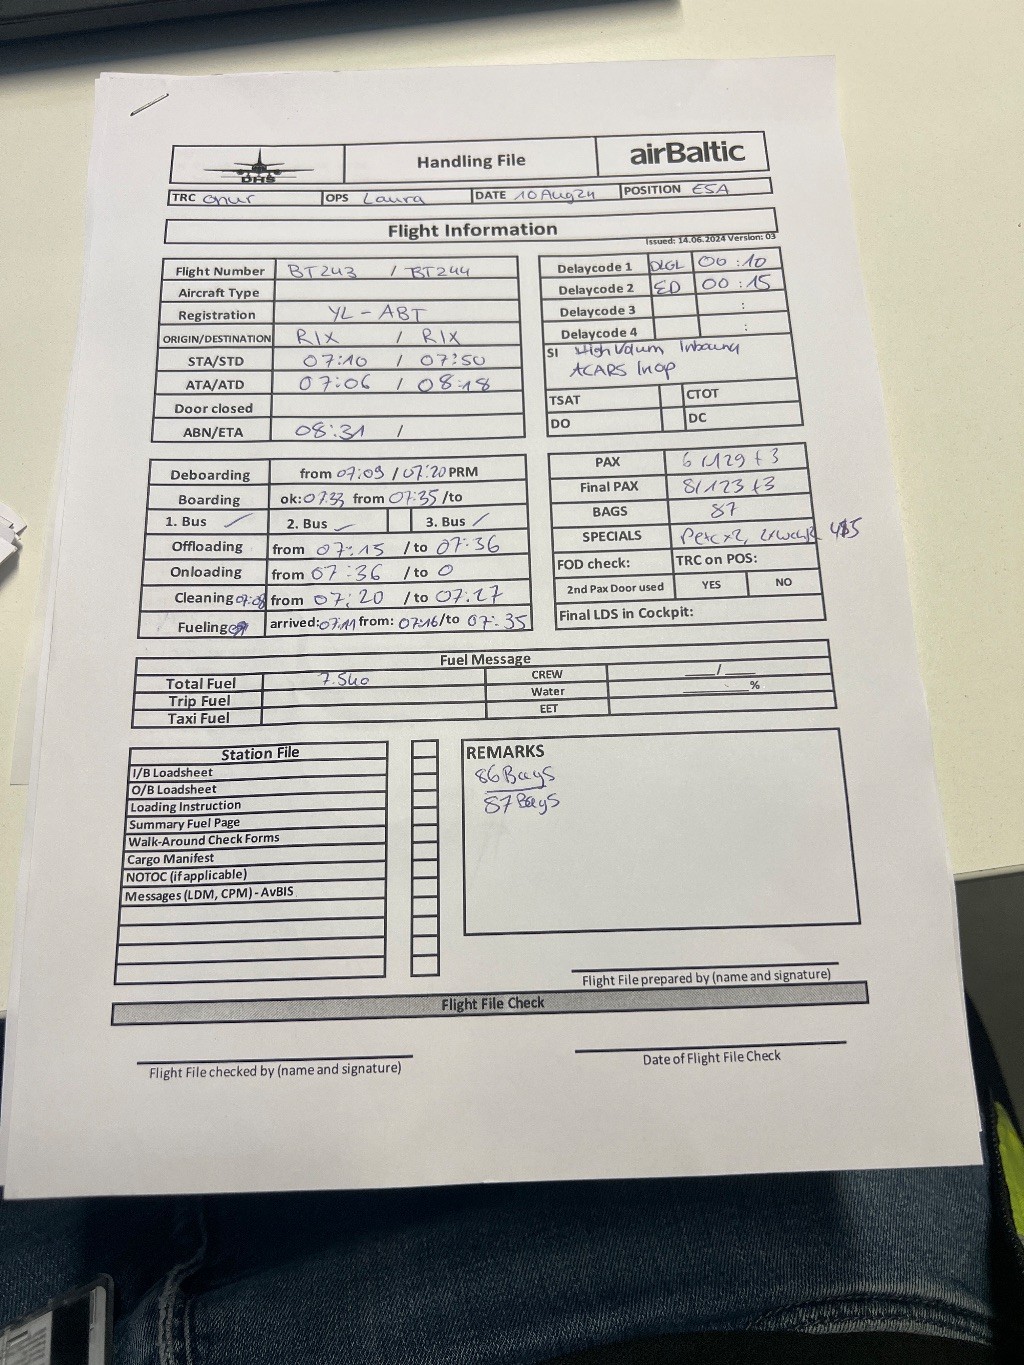 DHS Handling File airBaltic
TRC Onur OPS Laura DATE 10 Aug 24 POSITION E5A
Flight Information
Issued: 14.06.2024 Version: 03
Flight Number BT243 / BT244
Aircraft Type
Registration YL - ABT
ORIGIN/DESTINATION RIX / RIX
STA/STD 07:10 / 07:50
ATA/ATD 07:06 / 08:18
Door closed
ABN/ETA 08:31 /
Delaycode 1 00:10
Delaycode 2 ED 00:15
Delaycode 3 :
Delaycode 4 :
SI High Volum Inbound
ACARS Inop
TSAT CTOT
DO DC
Deboarding from 07:09 / 07:20 PRM
Boarding ok: 07:33 from 07:35 /to
1. Bus 2. Bus 3. Bus
Offloading from 07:15 / to 07:36
Onloading from 07:36 / to 0
Cleaning 07:08 from 07:20 / to 07:27
Fueling arrived: 07:11 from: 07:16 /to 07:35
PAX 6/129+3
Final PAX 8/123+3
BAGS 87
SPECIALS Petc x2,
FOD check: TRC on POS:
2nd Pax Door used YES NO
Final LDS in Cockpit:
Fuel Message
Total Fuel 7.540 CREW ___/___
Trip Fuel Water ______%
Taxi Fuel EET
Station File
I/B Loadsheet
O/B Loadsheet
Loading Instruction
Summary Fuel Page
Walk-Around Check Forms
Cargo Manifest
NOTOC (if applicable)
Messages (LDM, CPM) - AvBIS
REMARKS
86 Bags
87 Bags
Flight File prepared by (name and signature)
Flight File Check
Flight File checked by (name and signature)
Date of Flight File Check